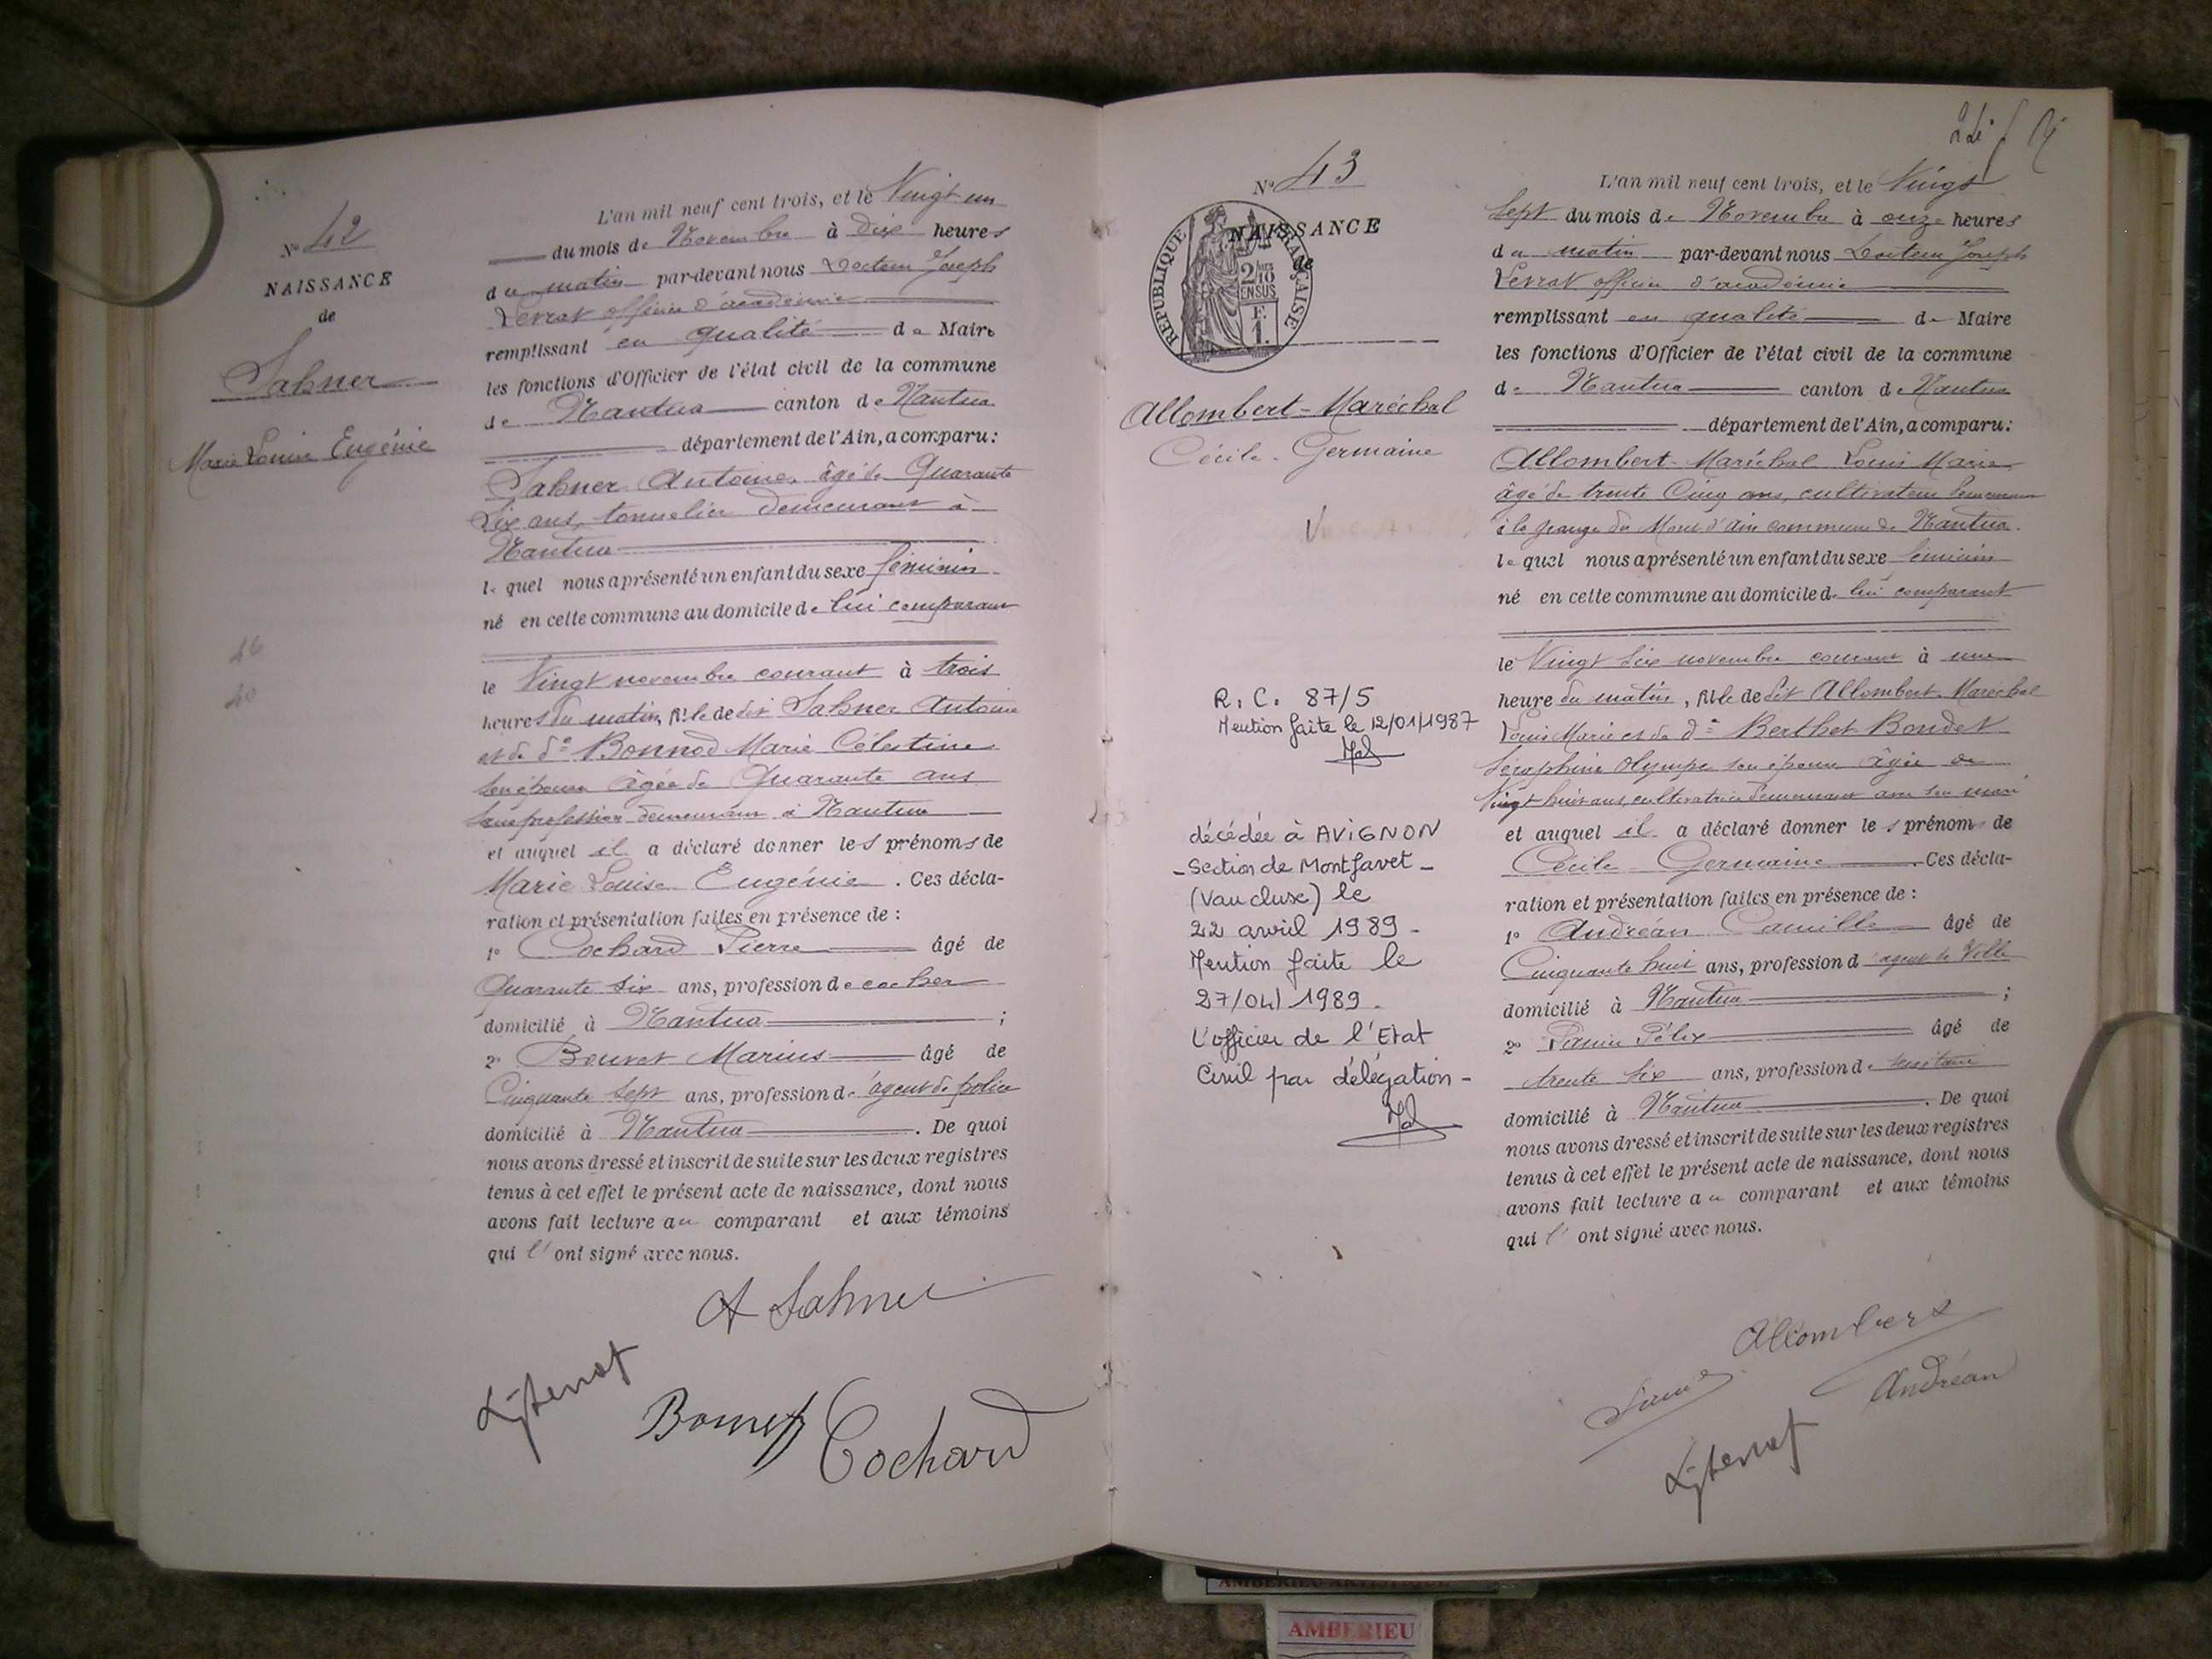 N° 42
NAISSANCE
de
Sahner
Marie Louise Eugénie
46
40
L'an mil neuf cent trois, et le Vingt un
du mois de Novembre à Dix heures
du matin par-devant nous Docteur Joseph
Levrat officier d'académie
remplissant en qualité de Maire
les fonctions d'Officier de l'état civil de la commune
de Nantua canton de Nantua
département de l'Ain, a comparu :
Sahner Antoine, âgé de Quarante
Six ans, tonnelier demeurant à
Nantua
lequel nous a présenté un enfant du sexe féminin
né en cette commune au domicile de lui comparant
le Vingt novembre courant à trois
heures du matin, fille de dit Sahner Antoine
et de de Bonnod Marie Célestine
son épouse âgée de Quarante ans
sans profession demeurant à Nantua
et auquel il a déclaré donner les prénoms de
Marie Louise Eugénie . Ces décla-
ration et présentation faites en présence de :
1° Cochard Pierre âgé de
Quarante six ans, profession de cocher
domicilié à Nantua ;
2° Bouvet Marius âgé de
Cinquante sept ans, profession d'agent de police
domicilié à Nantua . De quoi
nous avons dressé et inscrit de suite sur les deux registres
tenus à cet effet le présent acte de naissance, dont nous
avons fait lecture au comparant et aux témoins
qui l' ont signé avec nous.
A Sahner
Bouvet
Cochard
N° 43
NAISSANCE
de
REPUBLIQUE FRANÇAISE
2/10 EN SUS
F.
1.
Allombert-Maréchal
Cécile Germaine
R.C. 87/5
Mention faite le 12/01/1987
décédée à AVIGNON
- Section de Montfavet -
(Vaucluse) le
22 avril 1989 -
Mention faite le
27/04/1989.
L'officier de l'Etat
Civil par délégation -
L'an mil neuf cent trois, et le Vingt
Sept du mois de Novembre à onze heures
du matin par-devant nous Docteur Joseph
Levrat officier d'académie
remplissant en qualité de Maire
les fonctions d'Officier de l'état civil de la commune
de Nantua canton de Nantua
département de l'Ain, a comparu :
Allombert-Maréchal Louis Marie
âgé de trente Cinq ans, cultivateur demeurant
à la grange du Mont d'ain commune de Nantua.
lequel nous a présenté un enfant du sexe féminin
né en cette commune au domicile de lui comparant
le Vingt six novembre courant à une
heure du matin, fille de dit Allombert-Maréchal
Louis Marie et de de Berthet Bondet
Séraphine Olympe son épouse âgée de
Vingt huit ans, cultivatrice demeurant avec son mari
et auquel il a déclaré donner les prénoms de
Cécile Germaine . Ces décla-
ration et présentation faites en présence de :
1° Andréan Camille âgé de
Cinquante huit ans, profession d'agent de Ville
domicilié à Nantua ;
2° Félix âgé de
trente six ans, profession de secrétaire
domicilié à Nantua . De quoi
nous avons dressé et inscrit de suite sur les deux registres
tenus à cet effet le présent acte de naissance, dont nous
avons fait lecture au comparant et aux témoins
qui l' ont signé avec nous.
Allombert
Andréan
AMBERIEU ARTISTIQUE
AMBERIEU